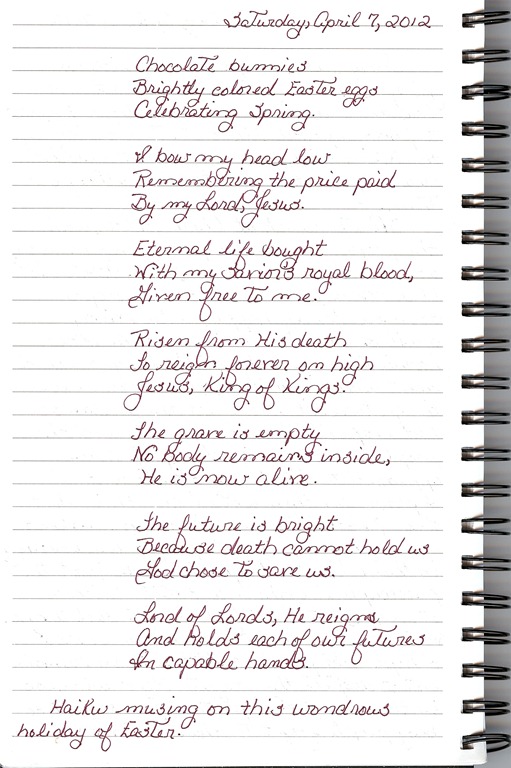 Saturday, April 7, 2012
Chocolate bunnies
Brightly colored Easter eggs
Celebrating Spring.
I bow my head low
Remembering the price paid
By my Lord, Jesus.
Eternal life bought
With my Savior's royal blood,
Given free to me.
Risen from His death
To reign forever on high
Jesus, King of Kings.
The grave is empty
No body remains inside,
He is now alive.
The future is bright
Because death cannot hold us
God chose to save us.
Lord of Lords, He reigns
And holds each of our futures
In capable hands.
Haiku musing on this wondrous
holiday of Easter.